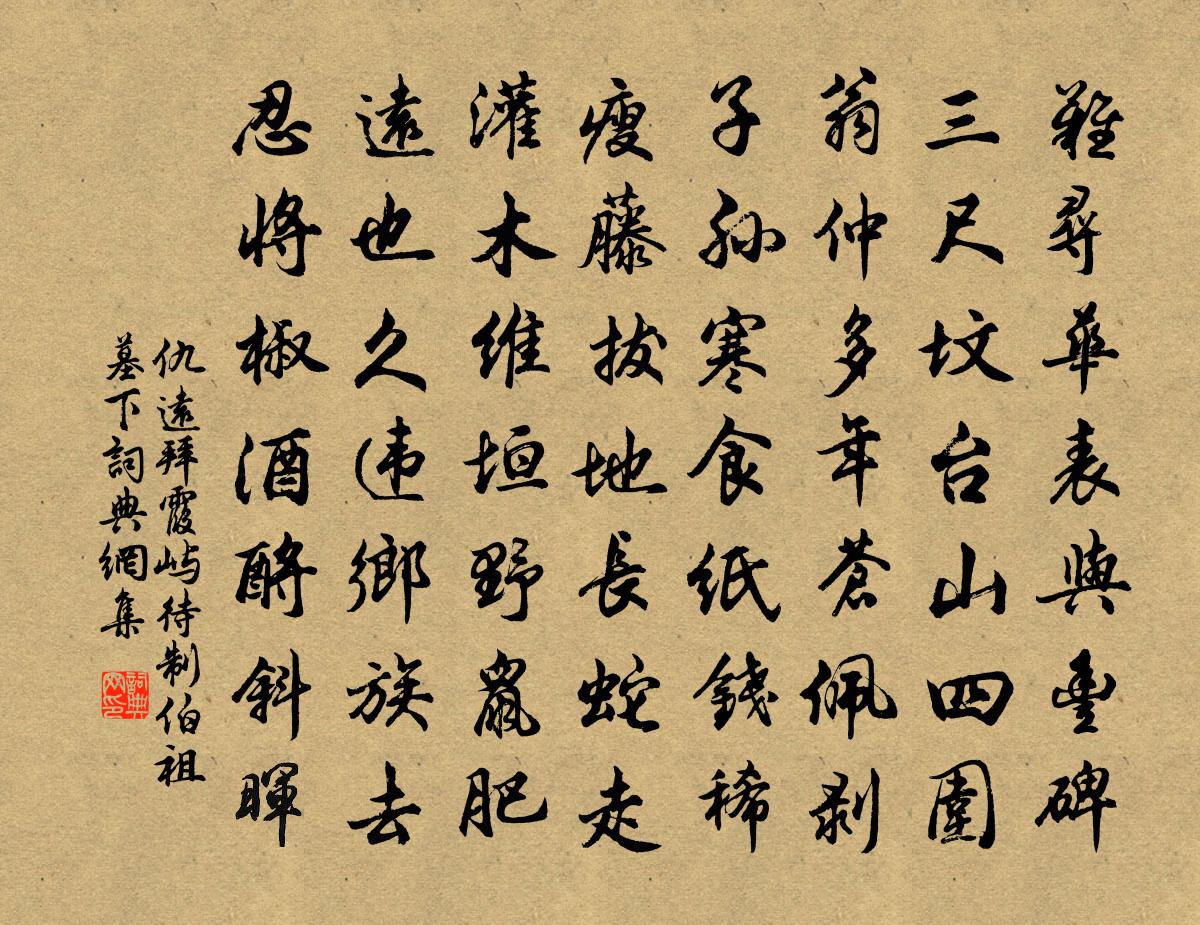 難尋華表與豐碑
三尺坟台山四圍
翁仲多年蒼佩剥
子孫寒食紙錢稀
瘦藤拔地長蛇走
灌木維垣野鼠肥
遠也久违鄉族去
忍將椒酒酹斜暉
仇遠拜霞屿待制伯祖
墓下詞典網集
詞典网印